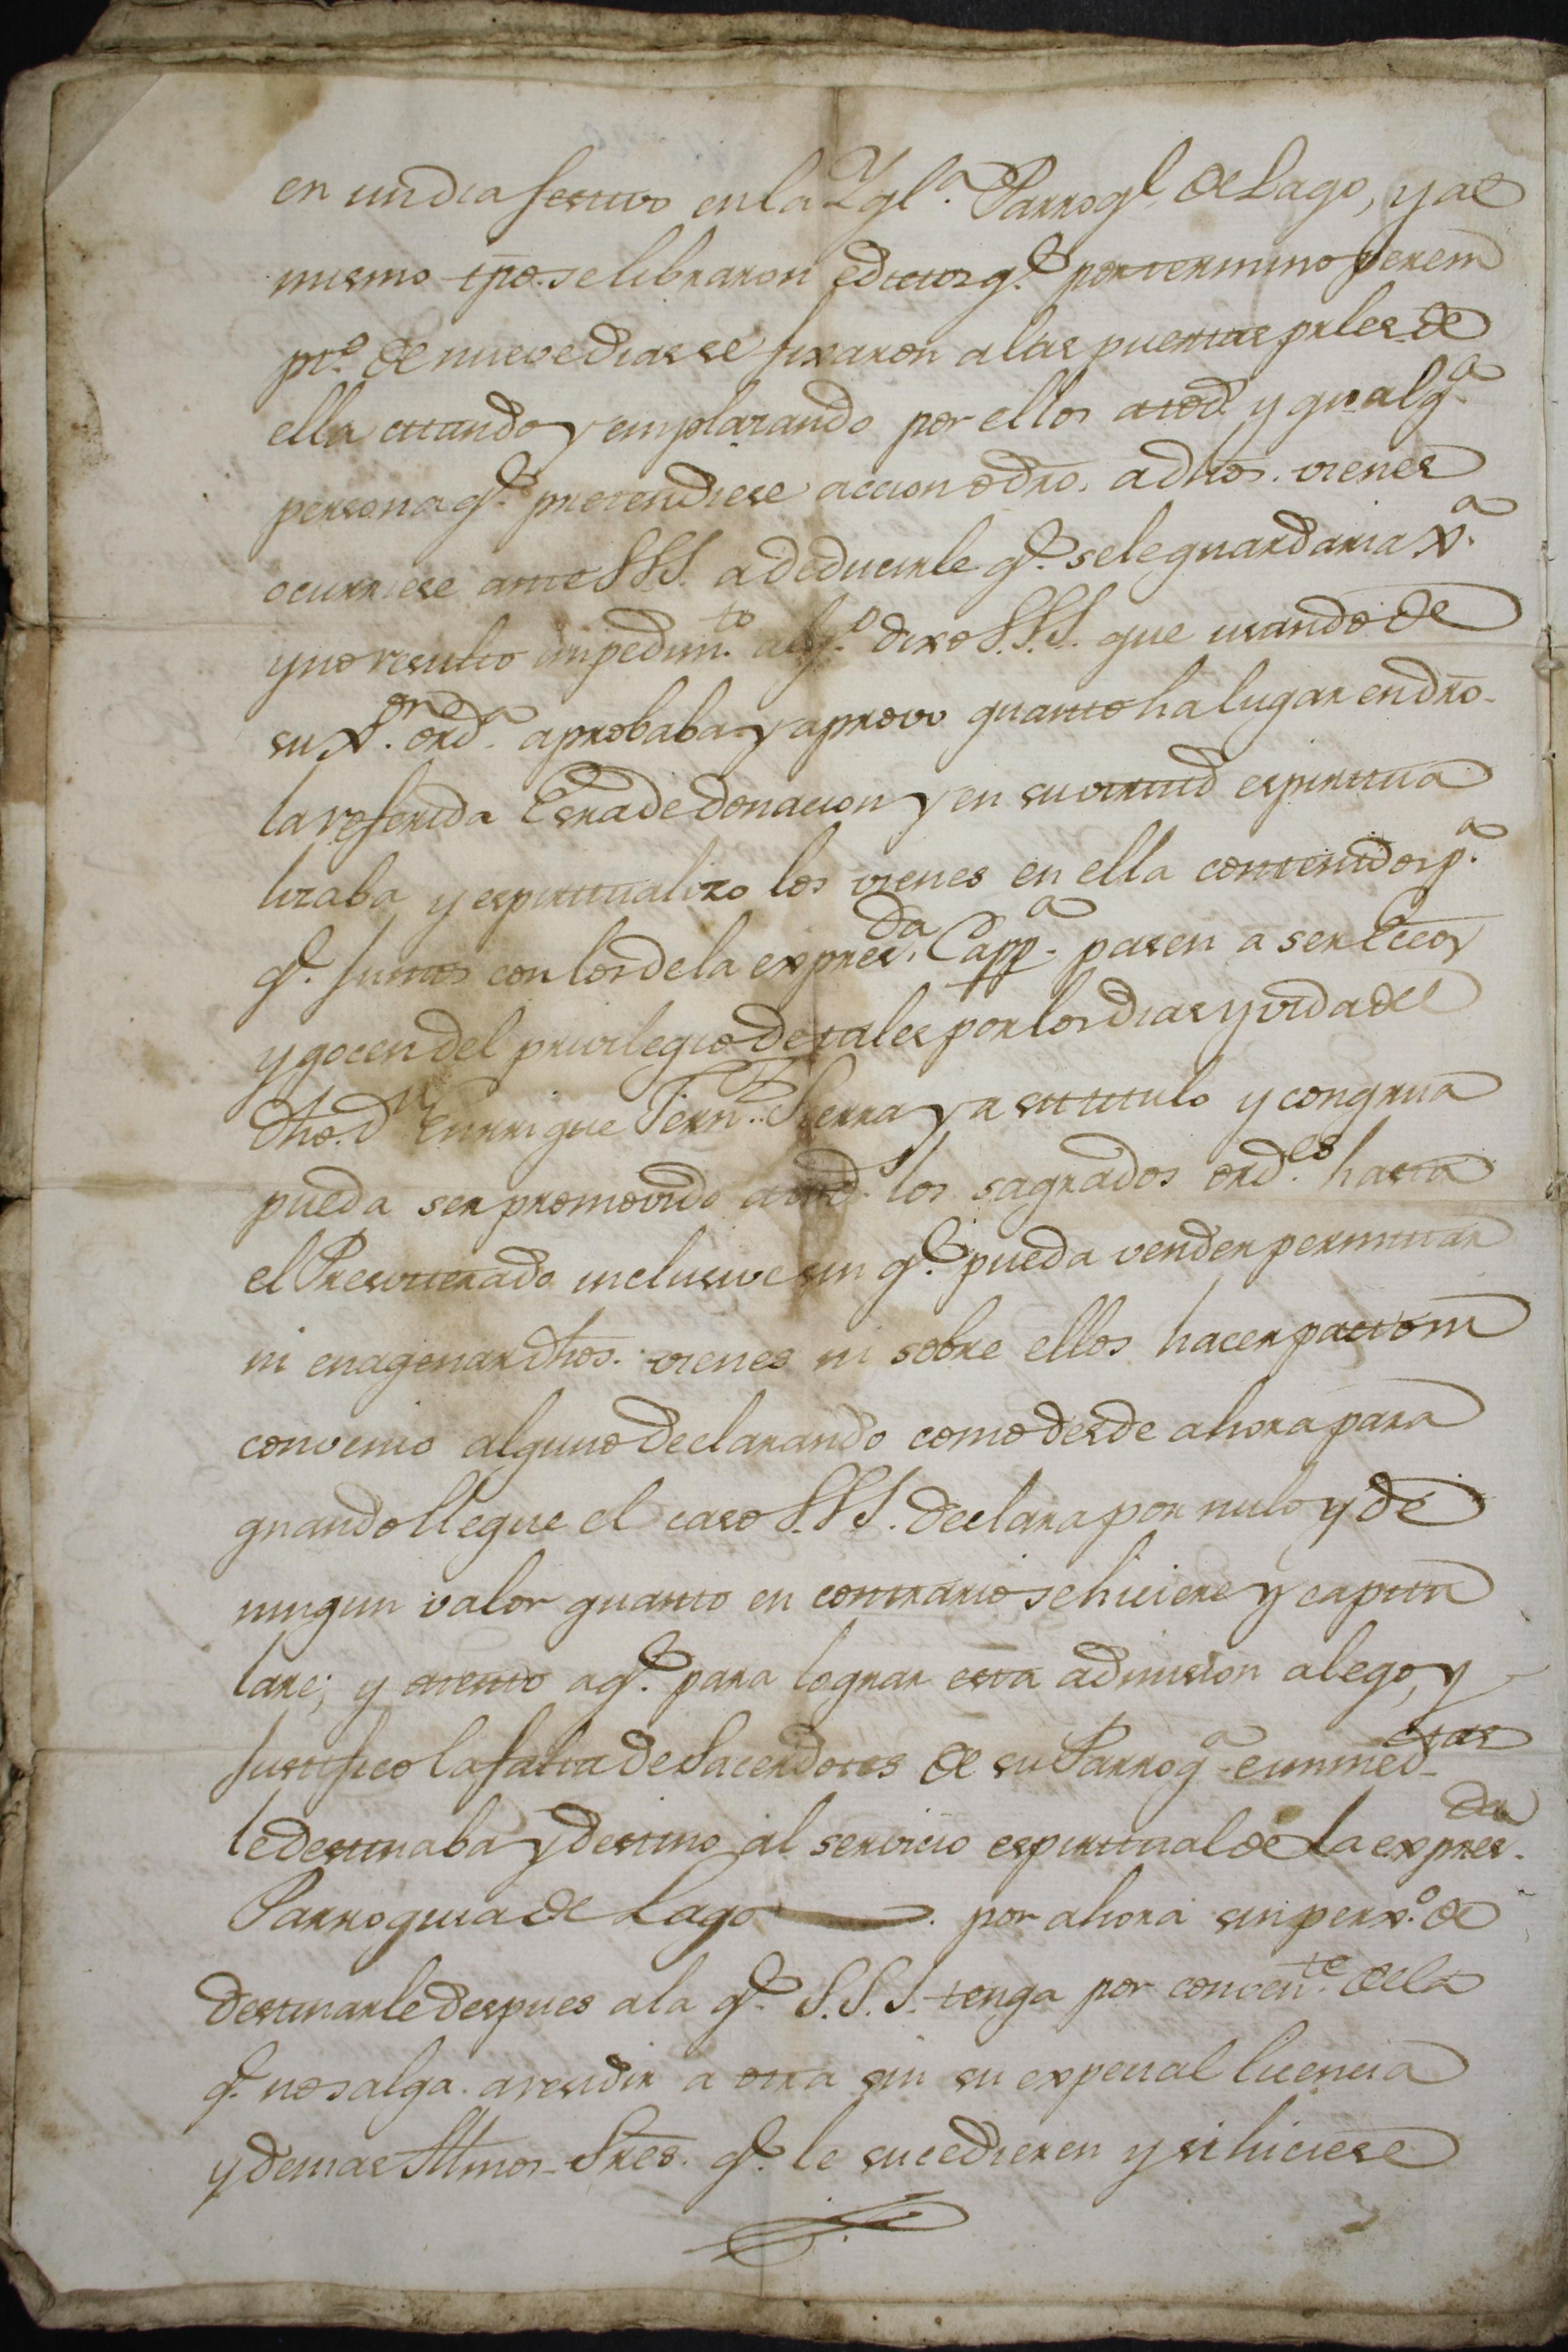 en un dia festivo en la Ygl.ª Parroql. de Lago, y al
mismo tpo. se libraron edictos q.e por termino perem
pt.º de nueve dias se fixaron a las puertas prles. de
ella citando y emplazando por ellos a tod.s y qualq.ª
persona q.e pretendiese accion o dro. a dhos. vienes
ocurriese ante S.S.I. a deducirle q.e se le guardaria X.ª
y no resulto impedim.to alg.º dixo S.S.I. que usando de
su X.on ord.ª aprobaba y aprovo quanto ha lugar en dro.
la referida Esra de donacion y en su virtud espiritua
lizaba y espiritualizo los vienes en ella contenidos p.ª
q.e juntos con los de la expres.da Capp.ª pasen a ser Eccos
y gocen del privilegio de tales por los dias y vida del
dho. D.n Enrrique Fern.z Sierra y a su titulo y congrua
pueda ser promovido a tod.s los sagrados ord.es hasta
el Presviterado inclusive sin q.e pueda vender permutar
ni enagenar dhos. vienes ni sobre ellos hacer pacto ni
convenio alguno declarando como desde ahora para
quando llegue el caso S.S.I. declara por nulo y de
ningun valor quanto en contrario se hiciere y capitu
lare; y atento a q.e para lograr esta admision alego, y
justifico la falta de Sacerdotes de su Parroq.ª e inmed.tas
le destinaba y destino al servicio espiritual de la expres.da
Parroquia de Lago . por ahora sin perx.º de
destinarle despues a la q.e S.S.I. tenga por conven.te de la
q.e no salga a residir a otra sin su expecial licencia
y demas Illmos. Sres. q.e le sucedieren y si hiciese